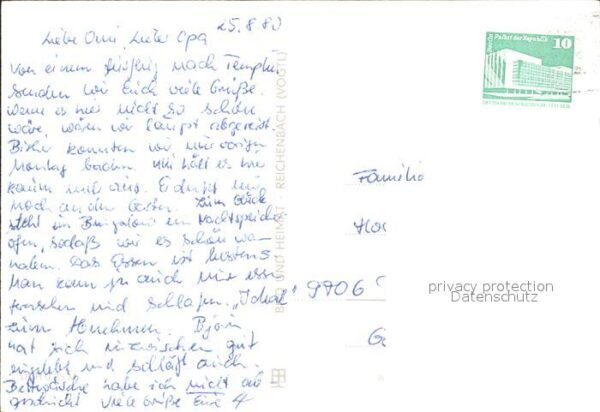 25.8.80
Liebe Omi, Lieber Opa
Von einem Ausflug nach Templin
senden wir Euch viele Grüße.
Wenn es hier nicht so schön
wäre, wären wir längst abgereist.
Bisher konnten wir nur vorigen
Montag baden. Man hält es hier
kaum mit aus.
noch an den Garten. Zum Glück
steht im Bungalow ein Nachtspeicher
ofen, sodaß wir es schön wa-
haben. Das Essen ist bestens
Man kann ja auch nur essen
forschen und schlafen. "Ideal"
zum Abnehmen. Björn
hat sich inzwischen gut
eingelebt und schläft auch.
Bettwäsche habe ich nicht ab
geschickt Viele Grüße Eure 4
BILD UND HEIMAT · REICHENBACH (VOGTL)
Berlin Palast der Republik
10
DEUTSCHE DEMOKRATISCHE REPUBLIK
Familie
9706
privacy protection
Datenschutz